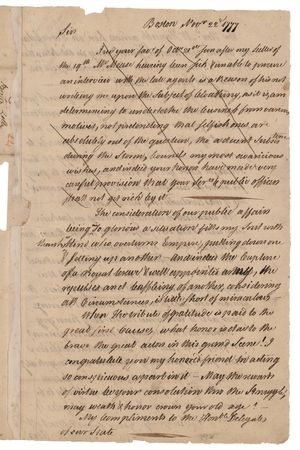 Boston Novr 22d 1777
Sir
I had your favr of Octr 21st soon after my letter
of the 19th Mr Mease having been sick & unable to procure
an interview with the late agents is a reason of his not
writing me upon the Subject of Cloathing, as it is, I am
determined to undertake the business from
motives, not pretending that selfishness are
absolutely out of the question, the
during the Storm, bounds my most avaricious
wishes, and indeed your honors have made very
careful provision that your servts & public officers
shall not get rich by it.
The consideration of our public affairs
being in so glorious a situation fills my Soul with
that kind also overturns Empires, pulling down one
& setting up another. And indeed the Capture
of a Royal & well appointed army, the
repulses and baffling of another, considering
all Circumstances, is little short of miraculous
When the tribute of gratitude is paid to the
great first Cause, what honor is due to the
brave the great actors in this grand Scene! I
congratulate you my honord friend in acting
so conspicuous a part in it — May the rewards
of virtue be your consolation thro the Struggle,
may wealth & honor crown your old age!
My compliments to the Honble Delegates
of our State